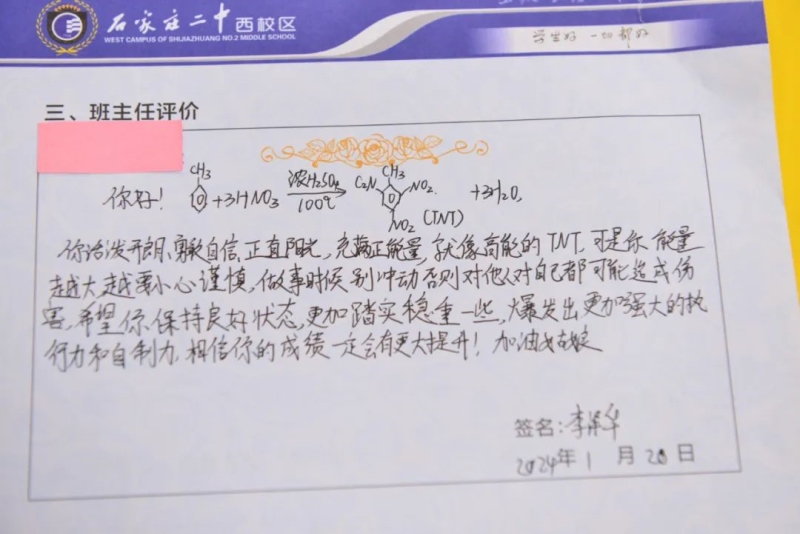 石家庄二中 西校区
WEST CAMPUS OF SHIJIAZHUANG NO.2 MIDDLE SCHOOL
学生好 一切都好
三、班主任评价
你好! CH₃ +3HNO₃ 浓H₂SO₄ 100℃ O₂N CH₃ NO₂ NO₂ (TNT) +3H₂O,
你活泼开朗,勇敢自信,正直阳光,充满正能量,就像高能的TNT,可是你能量
越大越要小心谨慎,做事时候别冲动否则对他人对自己都可能造成伤
害,希望你保持良好状态,更加踏实稳重一些,爆发出更加强大的执
行力和自制力,相信你的成绩一定会有更大提升!加油姑娘
签名:李
2024年1月20日